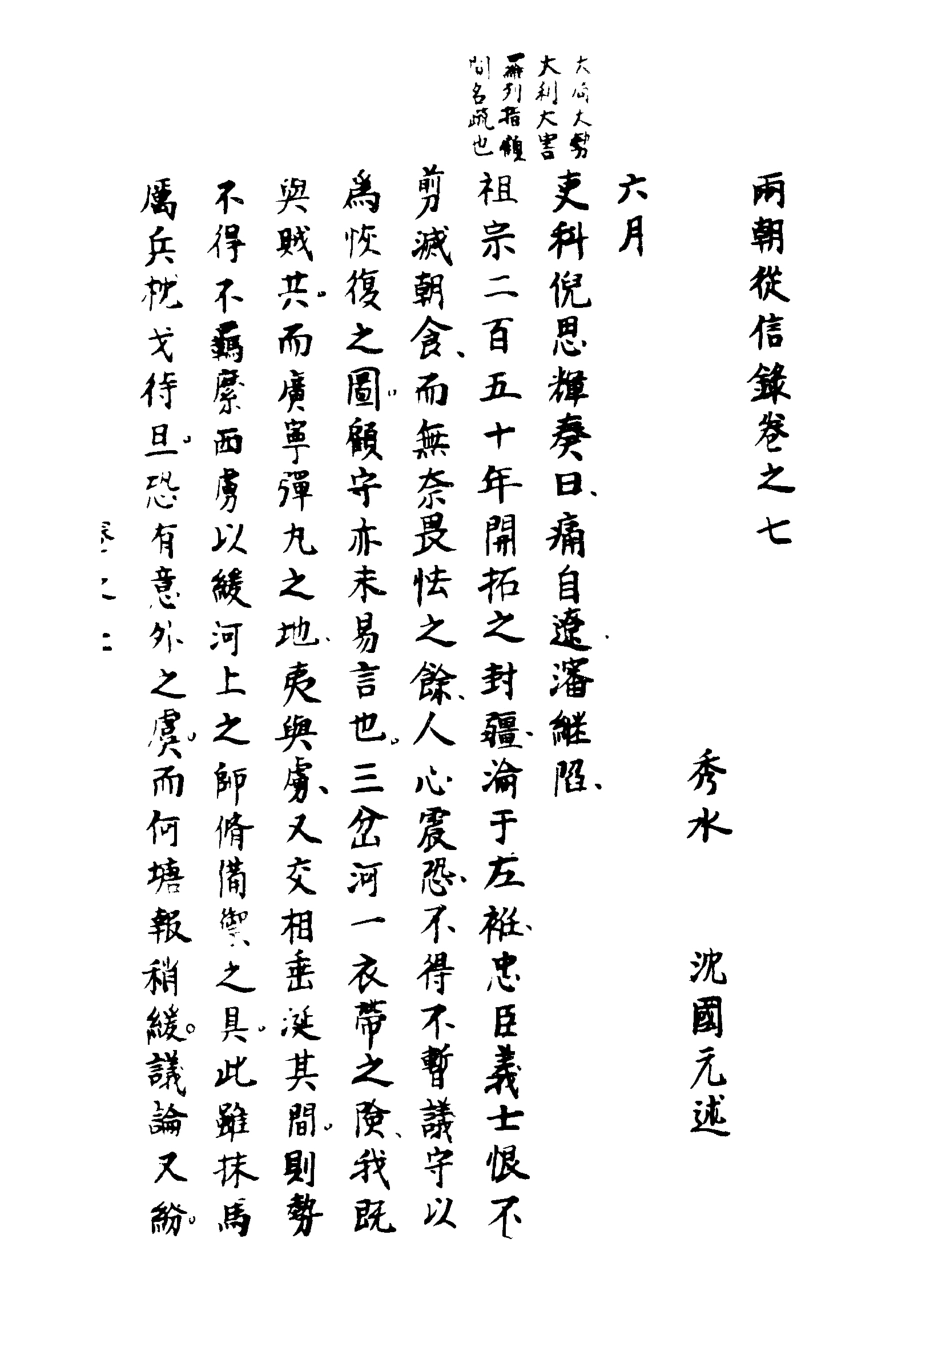 兩朝從信錄卷之七
秀水　沈國元述
六月
大局大勢
大利大害
一一臚列指顧
間名疏也
吏科倪思輝奏曰、痛自遼瀋継陷、
祖宗二百五十年開拓之封疆、淪于左袵、忠臣義士恨不
剪滅朝食、而無奈畏怯之餘、人心震恐、不得不暫議守以
爲恢復之圖。顧守亦未易言也。三岔河一衣帶之險、我既
與賊共。而廣寧彈丸之地、夷與虜、又交相垂涎其間。則勢
不得不羈縻西虜以緩河上之師脩備禦之具。此雖抹馬
厲兵枕戈待旦。恐有意外之虞。而何塘報稍緩。議論又紛。
卷之七